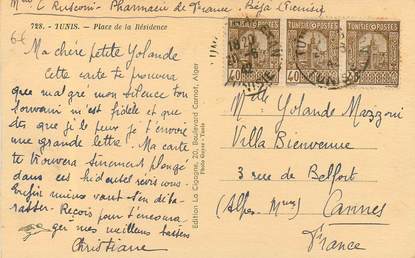 Mlle C Rusconi - Pharmacie de France - Béja (Tunisie)
728. - TUNIS. - Place de la Résidence
6€
Ma chère petite Yolande
Cette carte te prouvera
que malgré mon silence ton
souvenir m'est fidèle et que
dès que je le peux je t'envoie
une grande lettre. Ma carte
te trouvera sûrement plongé
dans ces hideuses révisions.
Enfin mieux vaut s'en déba-
rasser. Reçois pour t'encoura-
ger mes meilleurs baisers
Christiane
Edition La Cigogne, 20, Boulevard Carnot, Alger
TUNISIE POSTES
40
TUNISIE POSTES
40
TUNISIE POSTES
Mlle Yolande Mazzoni
Villa Bienvenue
3 rue de Belfort
(Alpes Mmes) Cannes
France